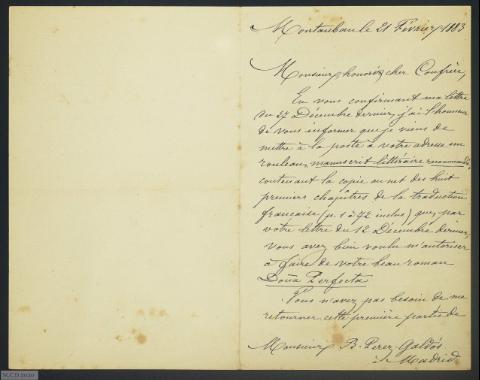 Montauban le 21 Février 1883
Monsieur, honoré & cher Confrère,
En vous confirmant ma lettre
du 27 Décembre dernier, j'ai l'honneur
de vous informer que je viens de
mettre à la poste à votre adresse un
rouleau, manuscrit littéraire recommandé,
contenant la copie au net des huit
premiers chapitres de la traduction
française (p. 1 à 72 inclus) que, par
votre lettre du 12 Décembre dernier,
vous avez bien voulu m'autoriser
à faire de votre beau roman
Doña Perfecta.
Vous n'avez pas besoin de me
retourner cette première partie de
Monsieur B. Perez Galdós
à Madrid